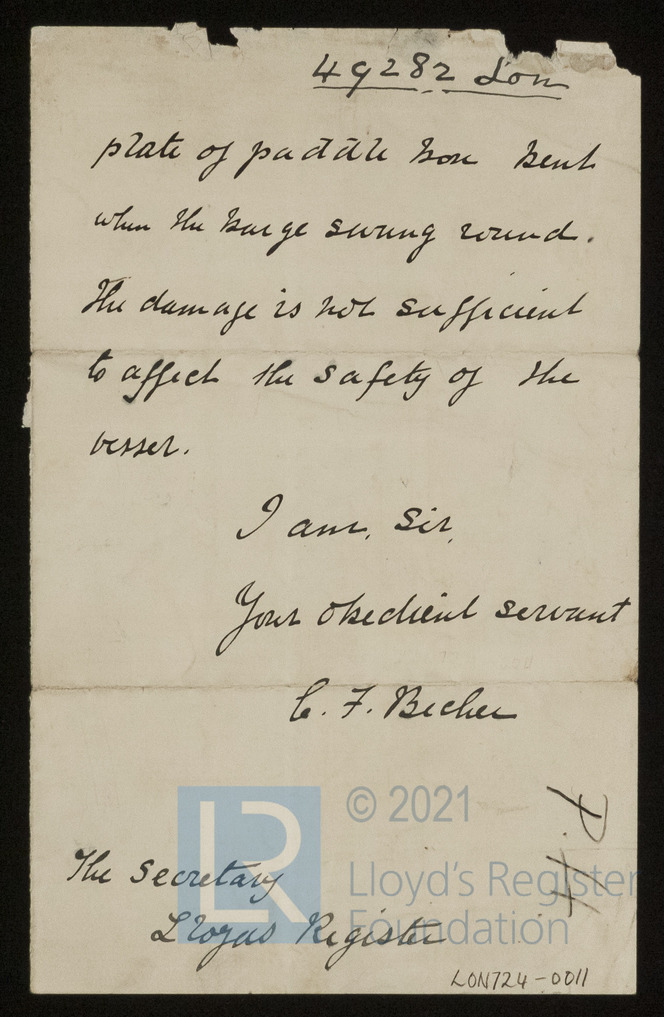 49282 Lon
plate of paddle box bent
when the barge swung round.
The damage is not sufficient
to affect the safety of the
vessel.
I am, Sir,
Your obedient servant
C. F. Becher
The Secretary
Lloyds Register
LR
© 2021
Lloyd's Register
Foundation
LON724-0011